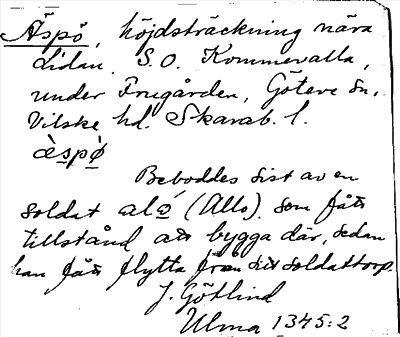 Äspö, höjdsträckning nära
Lidan, S.O. Kommevalla,
under Frugården, Göteve sn,
Vilske hd. Skarab. l.
ὰspö̀
Beboddes sist av en
soldat alo (Allo), som fått
tillstånd att bygga där, sedan
han fått flytta från sitt soldattorp.
J. Götlind
Ulma 1345:2